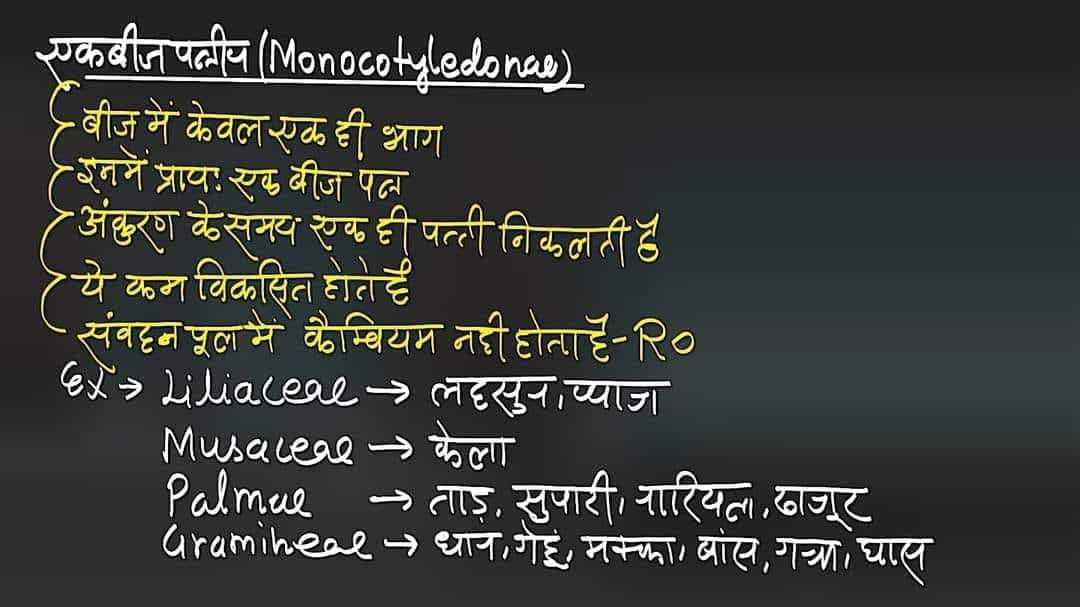 एकबीज पत्रीय (Monocotyledonae)
बीज में केवल एक ही भाग
इनमें प्रायः एक बीज पत्र
अंकुरण के समय एक ही पत्ती निकलती है
ये कम विकसित होते है
संवहन पूल में कैम्बियम नही होता है - RO
Ex → Liliaceae → लहसुन, प्याज
Musaceae → केला
Palmae → ताड़, सुपारी, नारियल, खजूर
Gramineae → धान, गेहूं, मक्का, बांस, गन्ना, घास